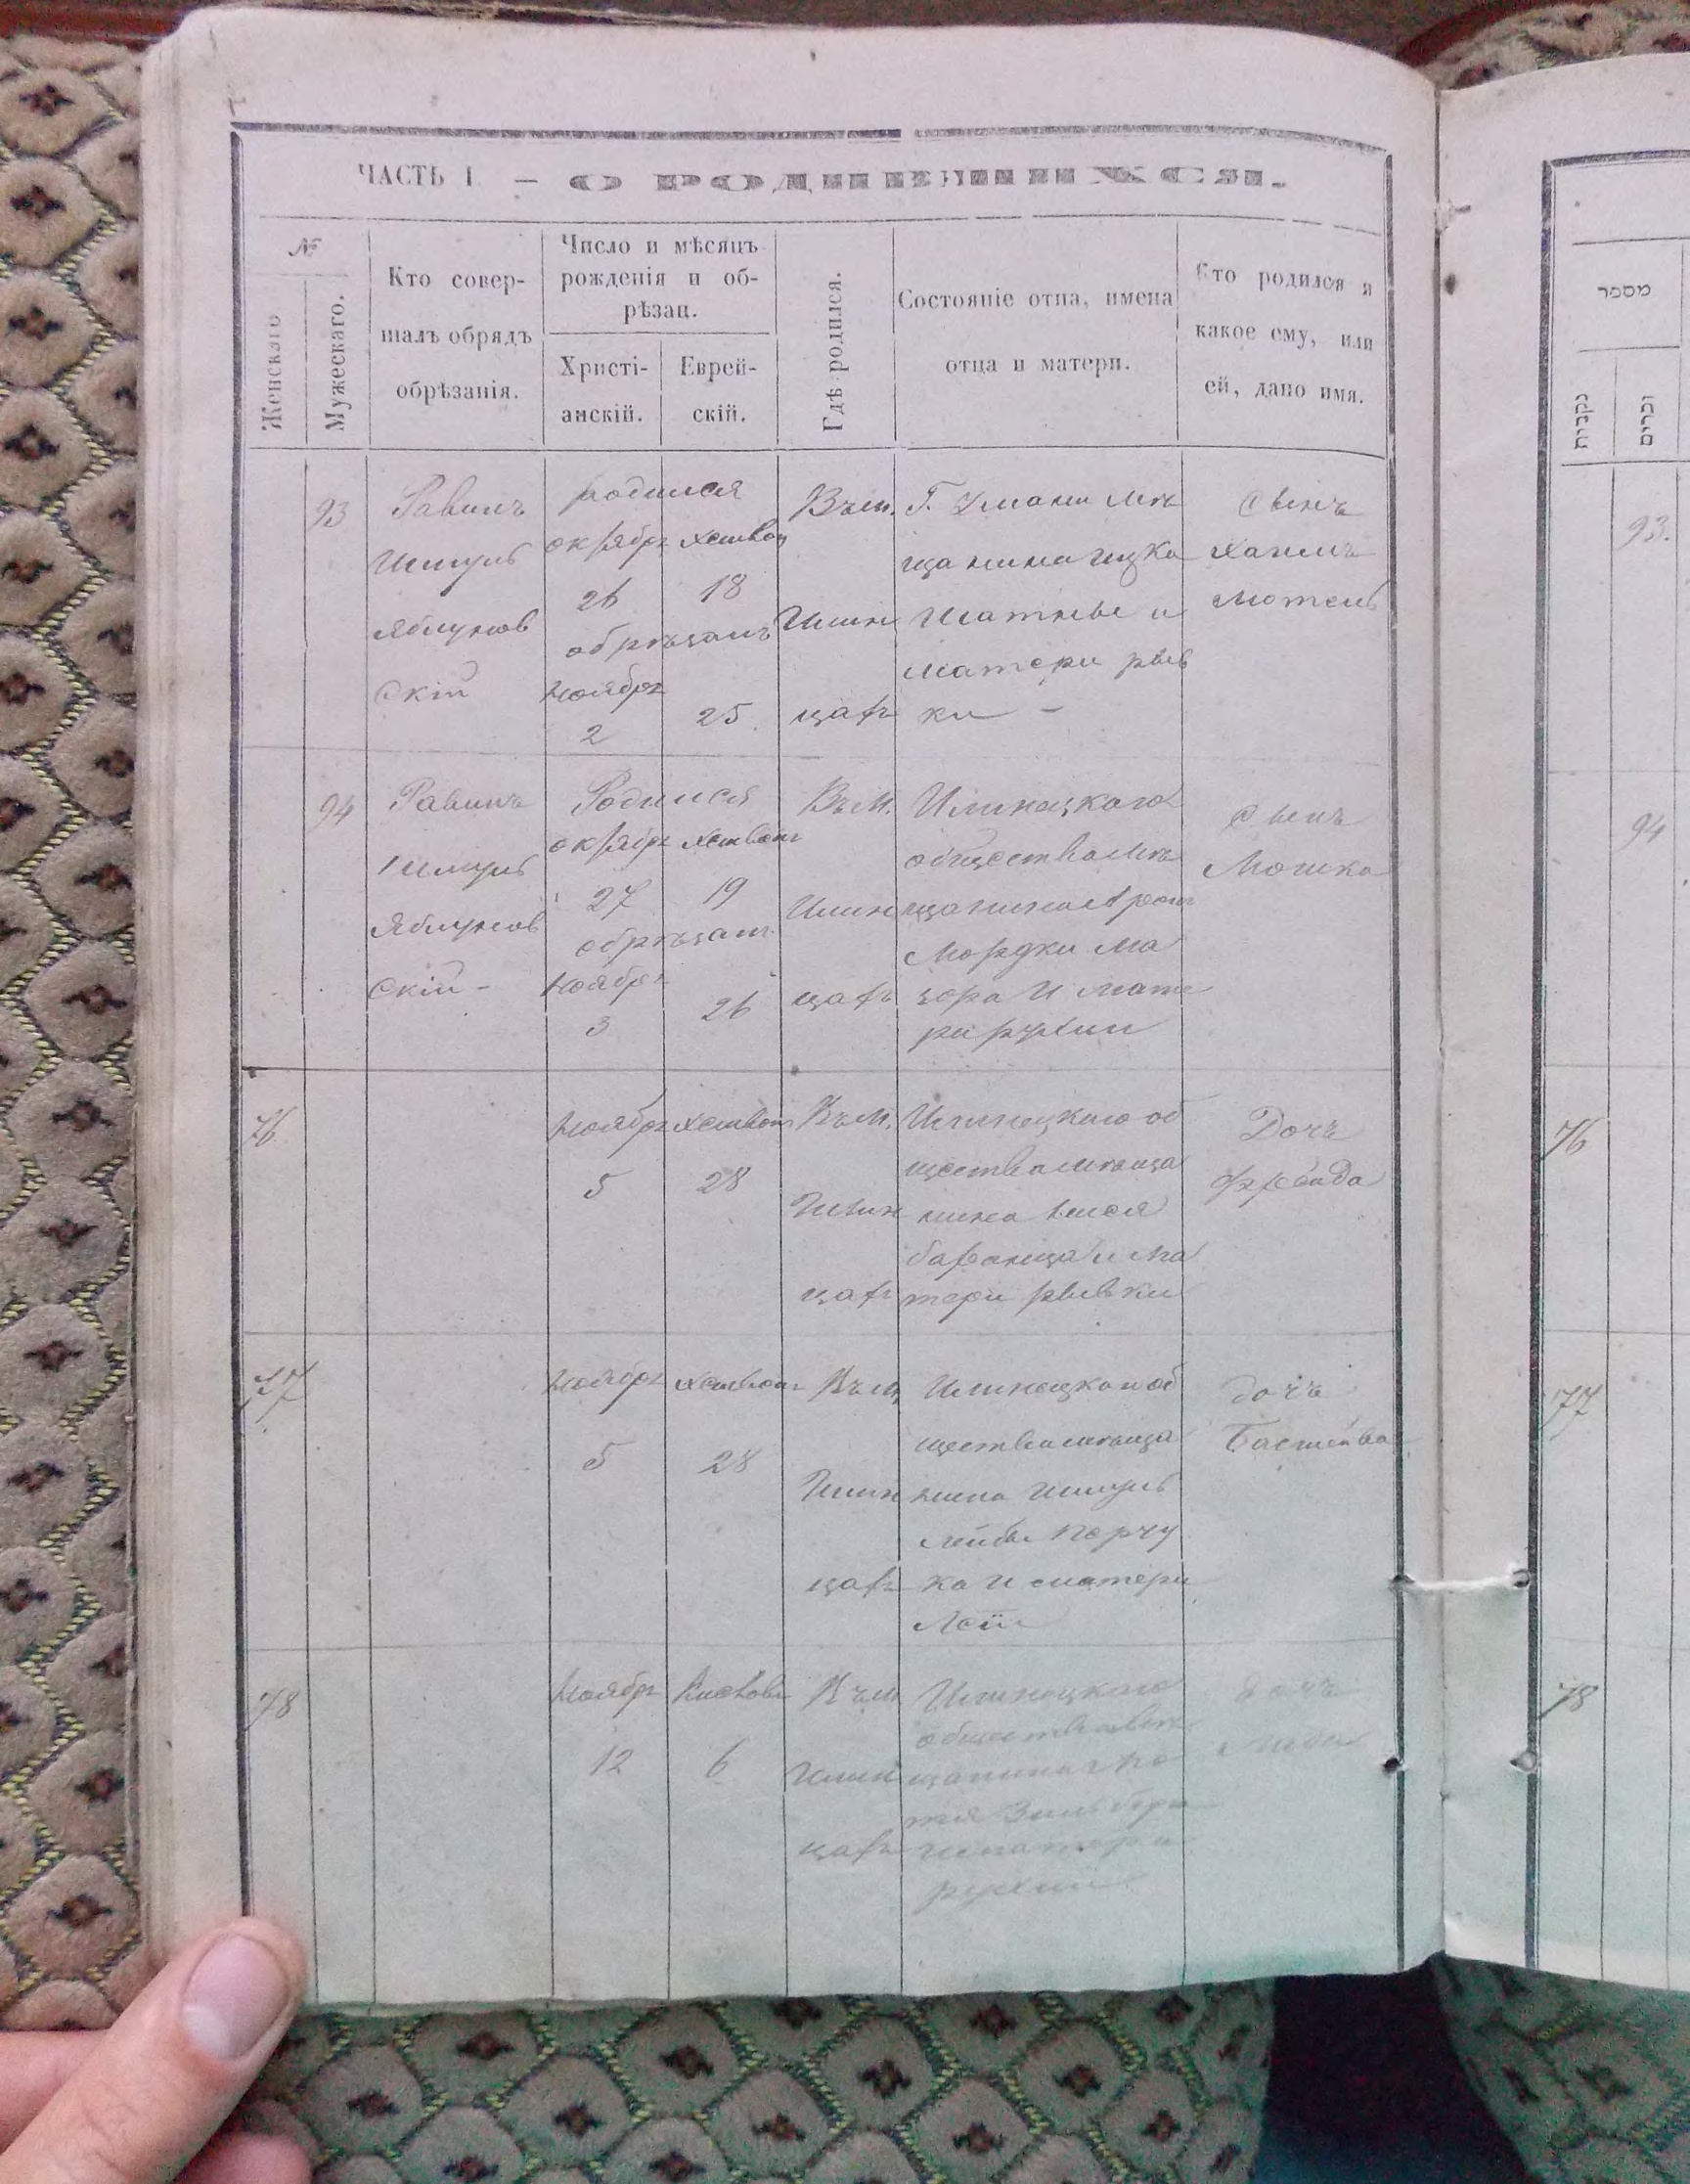 ЧАСТЬ I. — О РОДИВШИХСЯ.
№
Женскаго
Мужескаго.
Кто совер-
шалъ обрядъ
обрѣзанія.
Число и мѣсяцъ
рожденія и об-
рѣзан.
Христі-
анскій.
Еврей-
скій.
Гдѣ родился.
Состояніе отца, имена
отца и матери.
Кто родился и
какое ему, или
ей, дано имя.
93
Равинъ
Шмуль
Яблунов
скій
родился
октября
26
18
обрѣзанъ
ноября
2
25
Въ м.
Илин
цахъ
Г. Умани мѣ
щанина Ицка
и
матери рив
ки —
Сынъ
Хаимъ
Мотель
94
Равинъ
Шмуль
Яблунов
скій -
Родился
октября
27
19
обрѣзанъ
ноября
3
26
Въ м.
Илин
цахъ
Илинецкаго
общества мѣ
щанина Арон
Мордки Ма
зора и мате
ри рухли
Сынъ
Мошко
76
ноября
5
28
Въ м.
Илин
цахъ
Илинецкаго об
щества мѣща
нина
и ма
тери ривки
Дочь
Фрейда
77
ноября
5
28
Въ м.
Илин
цахъ
Илинецкаго об
щества мѣща
нина Шмуль
Лейбы
ка и матери
Леи
дочь
Басшейва
78
ноября
12
6
Въ м.
Илин
цахъ
Илинецкаго
общества мѣ
щанина
Зильбера
и матери
рухли
дочь
מספר
נקבות
זכרים
93.
94
76
77
78